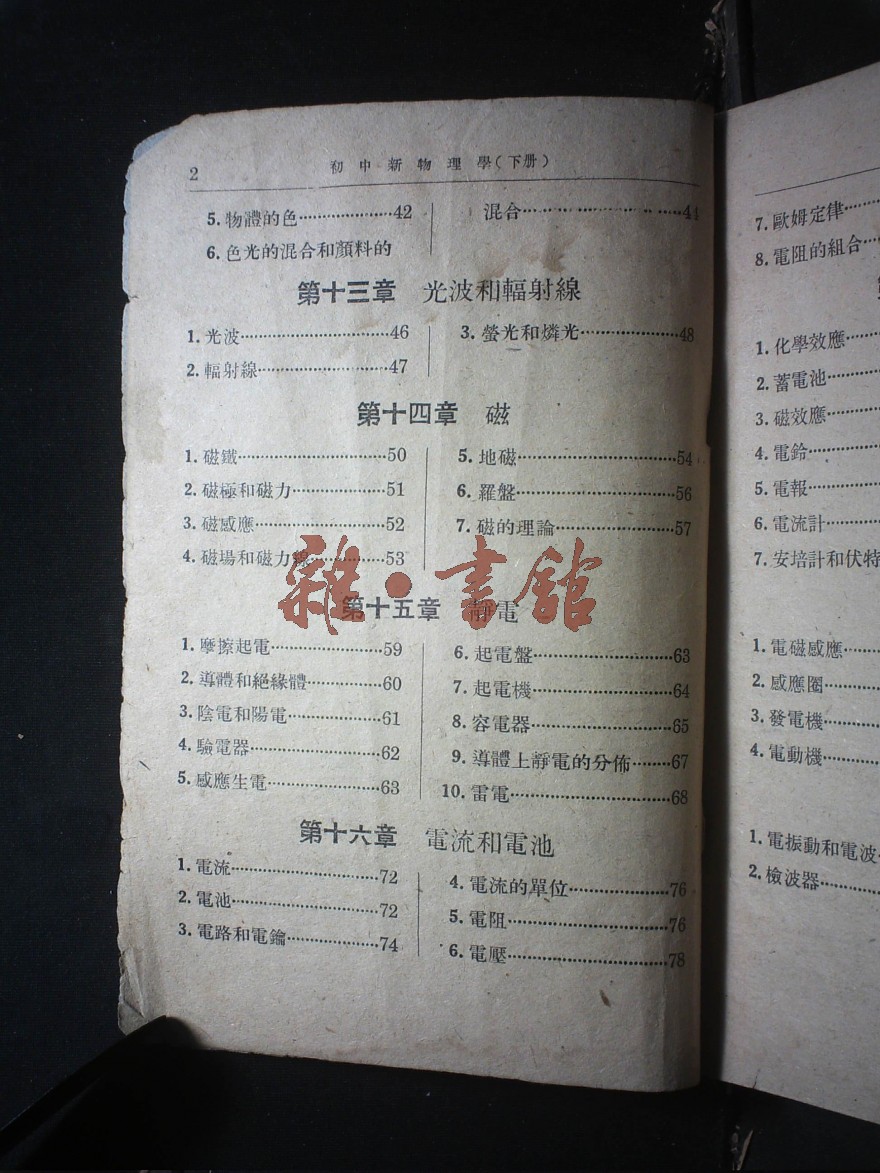 2
初中新物理學(下册)
5. 物體的色…………………42
6. 色光的混合和顏料的
混合…………………………44
第十三章 光波和輻射線
1. 光波…………………………46
2. 輻射線………………………47
3. 螢光和燐光…………………48
第十四章 磁
1. 磁鐵…………………………50
2. 磁極和磁力…………………51
3. 磁感應………………………52
4. 磁場和磁力線………………53
5. 地磁…………………………54
6. 羅盤…………………………56
7. 磁的理論……………………57
雜·書館
第十五章 靜電
1. 摩擦起電……………………59
2. 導體和絕緣體………………60
3. 陰電和陽電…………………61
4. 驗電器………………………62
5. 感應生電……………………63
6. 起電盤………………………63
7. 起電機………………………64
8. 容電器………………………65
9. 導體上靜電的分佈………67
10. 雷電…………………………68
第十六章 電流和電池
1. 電流…………………………72
2. 電池…………………………72
3. 電路和電鑰…………………74
4. 電流的單位…………………76
5. 電阻…………………………76
6. 電壓…………………………78
7. 歐姆定律……
8. 電阻的組合…
1. 化學效應……
2. 蓄電池………
3. 磁效應………
4. 電鈴…………
5. 電報…………
6. 電流計………
7. 安培計和伏特
1. 電磁感應……
2. 感應圈………
3. 發電機………
4. 電動機………
1. 電振動和電波…
2. 檢波器………